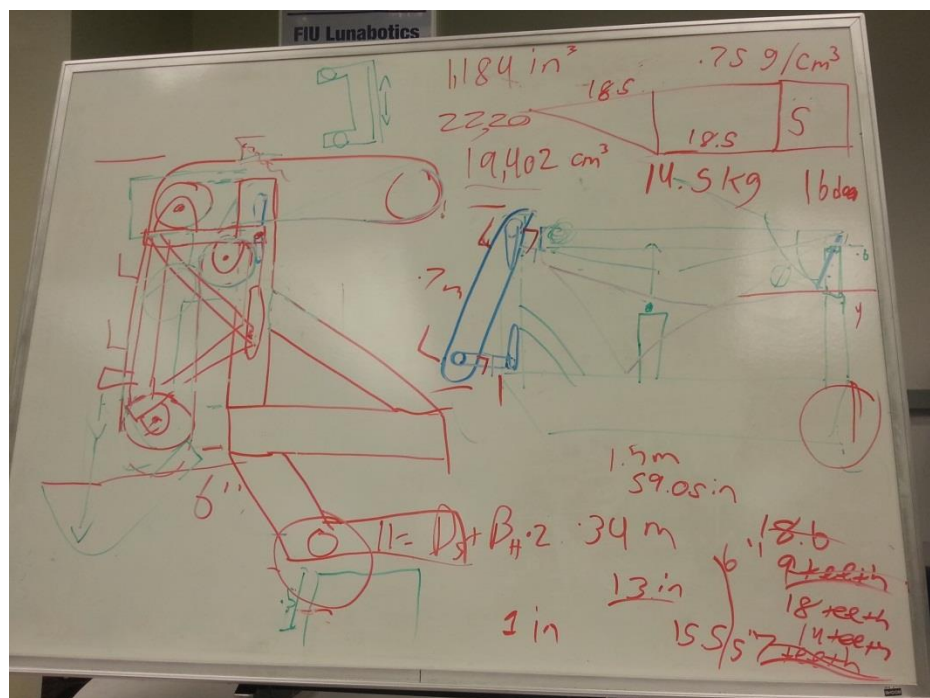 FIU Lunabotics
1,184 in³
.75 g/cm³
18.5
22,20
18.5
5
19,402 cm³
14.5 kg
16 deg
.7m
6"
1.5m
59.05in
H = Ds + BH·2
.34 m
13 in
1 in
18.6
9 teeth
18 teeth
14 teeth
15.5